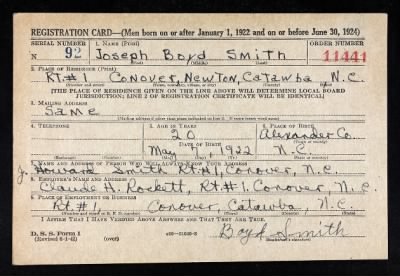 REGISTRATION CARD—(Men born on or after January 1, 1922 and on or before June 30, 1924)
SERIAL NUMBER 1. NAME (Print) ORDER NUMBER
N 92 Joseph Boyd Smith 11441
(First) (Middle) (Last)
2. PLACE OF RESIDENCE (Print)
Rt.#1, Conover, Newton, Catawba N.C.
(Number and street) (Town, township, village, or city) (County) (State)
[THE PLACE OF RESIDENCE GIVEN ON THE LINE ABOVE WILL DETERMINE LOCAL BOARD
JURISDICTION; LINE 2 OF REGISTRATION CERTIFICATE WILL BE IDENTICAL]
3. MAILING ADDRESS
Same
[Mailing address if other than place indicated on line 2. If same insert word same]
4. TELEPHONE 5. AGE IN YEARS 6. PLACE OF BIRTH
20 Alexander Co.
DATE OF BIRTH (Town or county)
May 7 1922 N.C.
(Exchange) (Number) (Mo.) (Day) (Yr.) (State or country)
7. NAME AND ADDRESS OF PERSON WHO WILL ALWAYS KNOW YOUR ADDRESS
J. Howard Smith Rt.#1, Conover, N.C.
8. EMPLOYER'S NAME AND ADDRESS
Claude H. Rockett, Rt.#1. Conover, N.C.
9. PLACE OF EMPLOYMENT OR BUSINESS
Rt.#1, Conover, Catawba, N.C.
(Number and street or R. F. D. number) (Town) (County) (State)
I AFFIRM THAT I HAVE VERIFIED ABOVE ANSWERS AND THAT THEY ARE TRUE.
D. S. S. Form 1
(Revised 6-1-42) (over) Boyd Smith
(Registrant's signature)